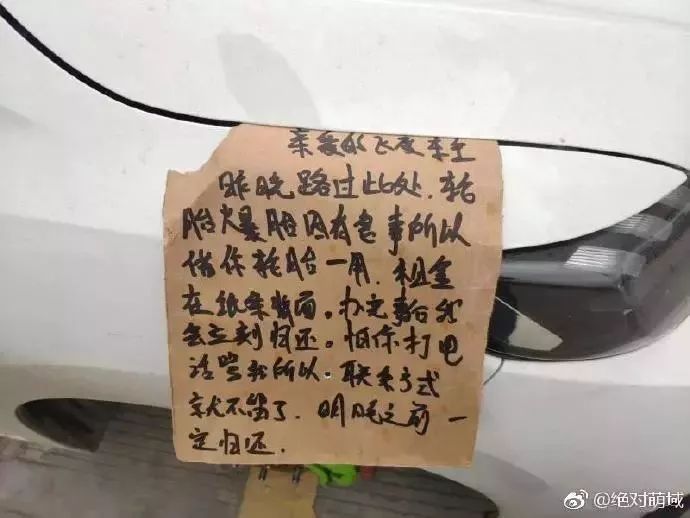 亲爱的飞度车主
昨晚路过此处.轮
胎火暴胎因有急事所以
借你轮胎一用.租金
在纸条背面。办完事后我
会立刻归还。怕你打电
话骂我所以.联系方式
就不留了.明晚之前一
定归还.
@绝对萌域